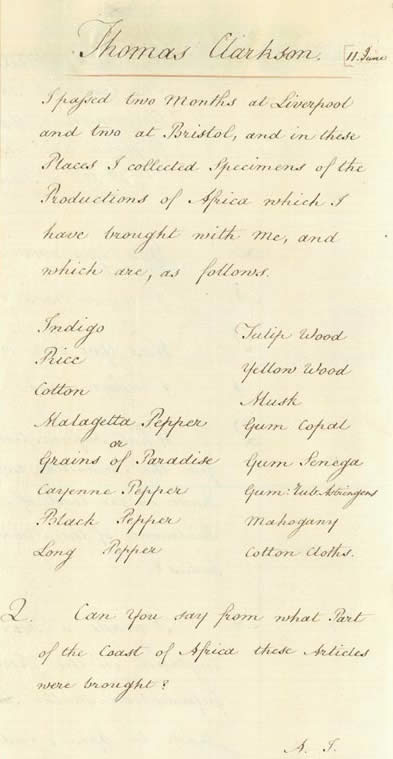 Thomas Clarkson. [11. June
I passed two Months at Liverpool
and two at Bristol, and in these
Places I collected Specimens of the
Productions of Africa which I
have brought with me, and
which are, as follows.
Indigo
Rice
Cotton
Malagetta Pepper
or
Grains of Paradise
Cayenne Pepper
Black Pepper
Long Pepper
Tulip Wood
Yellow Wood
Musk
Gum Copal
Gum Senega
Gum: Rub: Astringens
Mahogany
Cotton Cloths.
Q. Can You say from what Part
of the Coast of Africa these Articles
were brought?